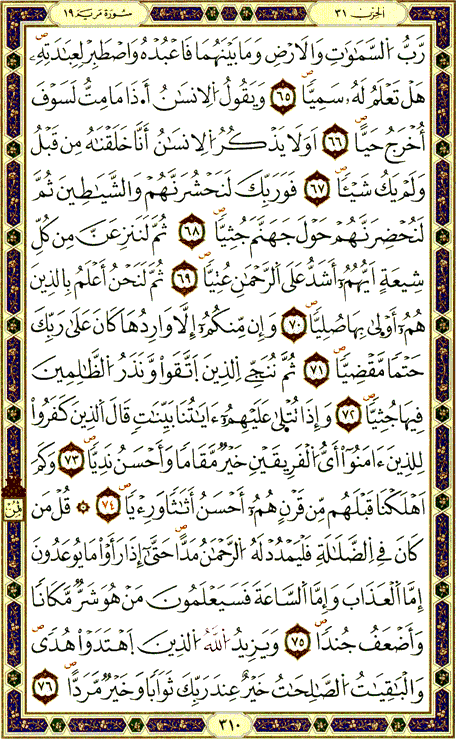 الحزب ٣١
سورة مريم ١٩
رَّبُّ السَّمَٰوَٰتِ وَالَارْضِ وَمَا بَيْنَهُمَا فَاعْبُدْهُ وَاصْطَبِرْ لِعِبَٰدَتِهِۦ
هَلْ تَعْلَمُ لَهُۥ سَمِيّاٗ ٦٥ وَيَقُولُ الِانسَٰنُ أَ۟ذَا مَا مِتُّ لَسَوْفَ
أُخْرَجُ حَيّاً ٦٦ اَوَلَا يَذْكُرُ الِانسَٰنُ أَنَّا خَلَقْنَٰهُ مِن قَبْلُ
وَلَمْ يَكُ شَيْـٔاٗ ٦٧ فَوَرَبِّكَ لَنَحْشُرَنَّهُمْ وَالشَّيَٰطِينَ ثُمَّ
لَنُحْضِرَنَّهُمْ حَوْلَ جَهَنَّمَ جُثِيّاٗ ٦٨ ثُمَّ لَنَنزِعَنَّ مِن كُلِّ
شِيعَةٍ اَيُّهُمُۥٓ أَشَدُّ عَلَى الرَّحْمَٰنِ عُتِيّاٗ ٦٩ ثُمَّ لَنَحْنُ أَعْلَمُ بِالذِينَ
هُمُۥٓ أَوْلَىٰ بِهَا صُلِيّاٗ ٧٠ وَإِن مِّنكُمُۥٓ إِلَّا وَارِدُهَا كَانَ عَلَىٰ رَبِّكَ
حَتْماٗ مَّقْضِيّاٗ ٧١ ثُمَّ نُنَجِّي الذِينَ اَتَّقَواْ وَّنَذَرُ الظَّٰلِمِينَ
فِيهَا جُثِيّاٗ ٧٢ وَإِذَا تُتْلَىٰ عَلَيْهِمُۥٓ ءَايَٰتُنَا بَيِّنَٰتٖ قَالَ الذِينَ كَفَرُواْ
لِلذِينَ ءَامَنُوٓاْ أَيُّ الْفَرِيقَيْنِ خَيْرٞ مَّقَاماٗ وَأَحْسَنُ نَدِيّاٗ ٧٣ وَكَمَ
اَهْلَكْنَا قَبْلَهُم مِّن قَرْنٍ هُمُۥٓ أَحْسَنُ أَثَٰثاٗ وَرِءْياٗ ٧٤ ۞ قُلْ مَن
كَانَ فِي الضَّلَٰلَةِ فَلْيَمْدُدْ لَهُ الرَّحْمَٰنُ مَدّاً حَتَّىٰٓ إِذَا رَأَوْاْ مَا يُوعَدُونَ
إِمَّا الْعَذَابَ وَإِمَّا السَّاعَةَ فَسَيَعْلَمُونَ مَنْ هُوَ شَرّٞ مَّكَاناٗ
وَأَضْعَفُ جُنداٗ ٧٥ وَيَزِيدُ اللَّهُ الذِينَ اَهْتَدَوْاْ هُدىٗ
وَالْبَٰقِيَٰتُ الصَّٰلِحَٰتُ خَيْرٌ عِندَ رَبِّكَ ثَوَاباٗ وَخَيْرٞ مَّرَدّاً ٧٦
ثمن
٣١٠